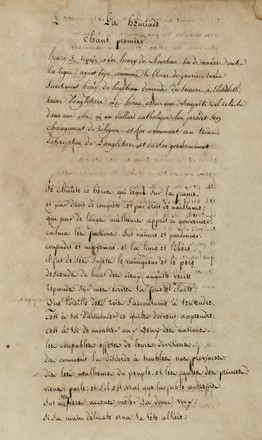 La henriade
chant premier
henry 3, ligué avec henry de Bourbon
la ligue, ayant deja commencé le blocus de
secretement henry de bourbon demander du secours a Elisabeth,
reine d'angleterre. Le heros
dans une isle, ou un vieillard catholique luy predit son
changement de religion et son avenement au trône
description de L'angleterre et de son gouvernement
Je chante ce heros qui regna sur la france,
et par droit de conquête et par droit de naissance;
qui par de longs malheurs apprit a gouverner
calma les factions sut vaincre et pardonner
confondit et mayenne, et la ligue et l'ibere
et fut de ses sujets le vainqueur et le père
descends du haut des cieux auguste verité
repands sur mes écrits ta force et clarté
que l'oreille des rois s'accoutume a t'entendre
c'est a toi d'annoncer ce qu'ils doivent apprendre
c'est a toi de montrer aux yeux des nations
les coupables effets de leurs divisions
dis comment la discorde a troublé nos provinces
dis les malheurs du peuple, et les fautes des princes
viens parle, et s'il est vrai que la fable autrefois
sut a tes fiers accens meler sa douce voix
si sa main délicate orna ta tête altiere: